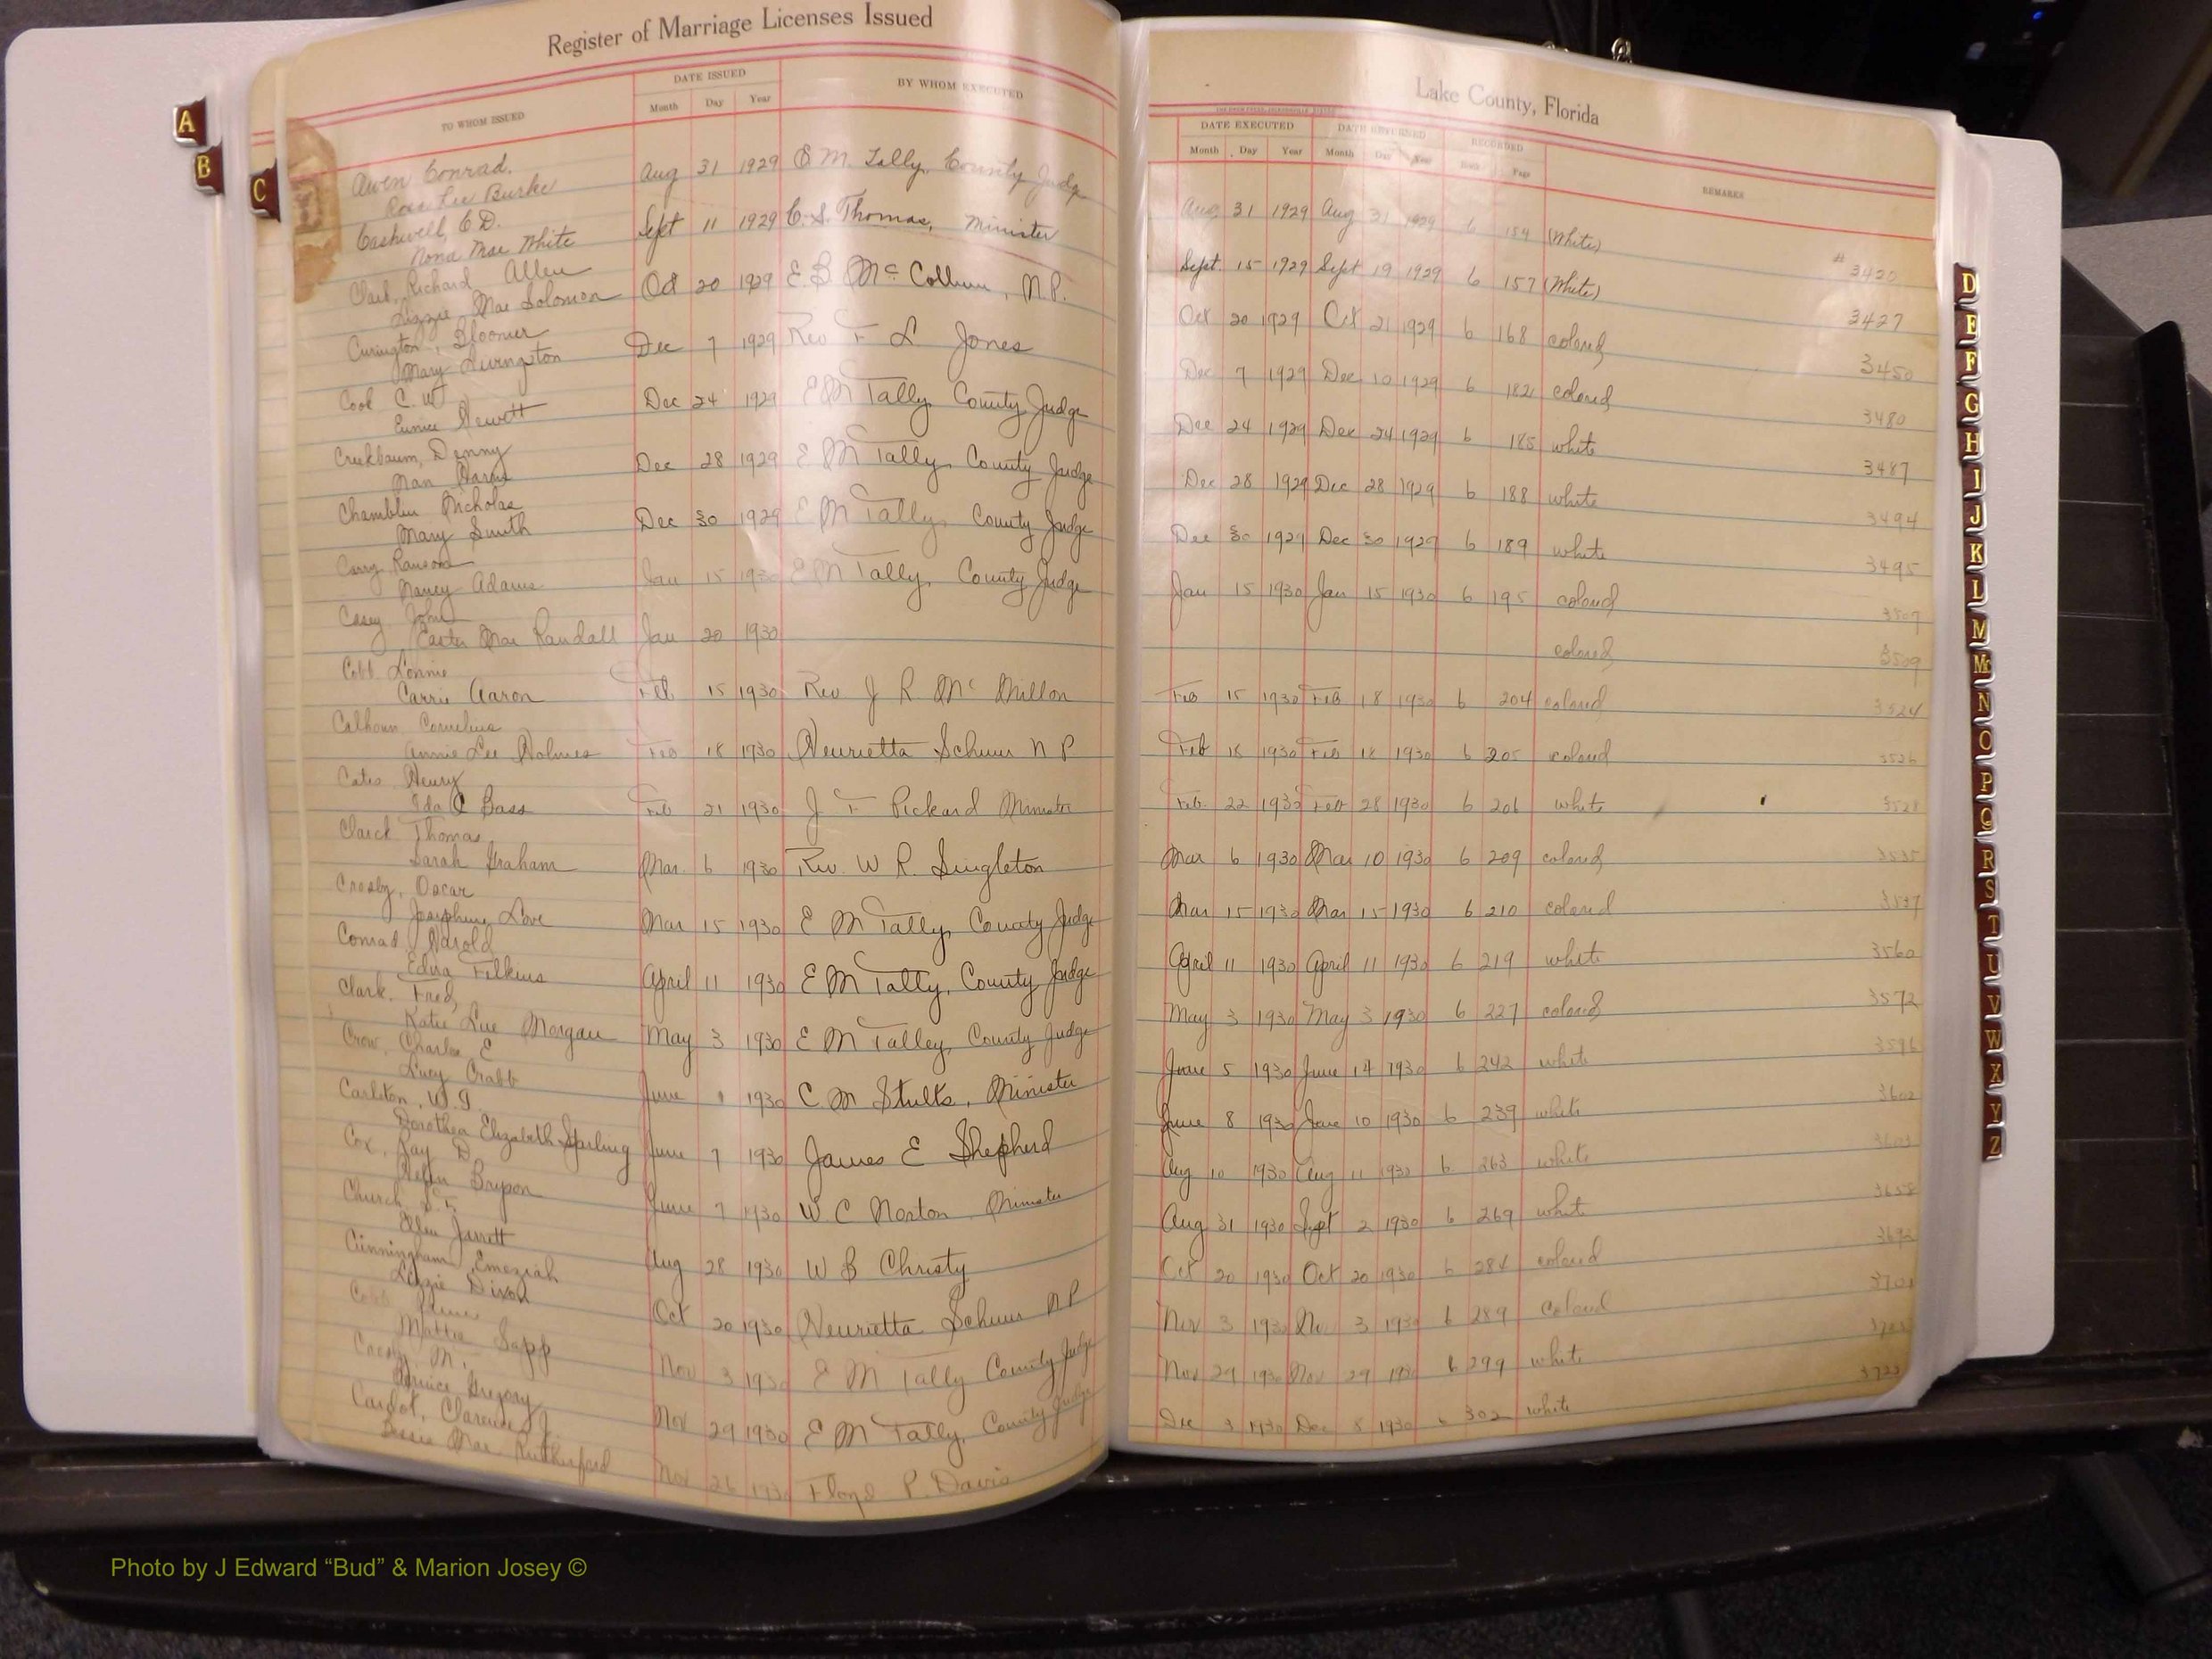 Register of Marriage Licenses Issued
TO WHOM ISSUED
DATE ISSUED
Month Day Year
BY WHOM EXECUTED
Owen Conrad.
Rosa Lee Burke
Aug 31 1929 E M. Tally, County Judge
Cashwell, C D.
Nona Mae White
Sept 11 1929 C. S. Thomas, Minister
Clark, Richard Allen
Lizzie Mae Solomon
Oct 20 1929 E. B. McCollum, N.P.
Curington, Bloomer
Mary Livingston
Dec 7 1929 Rev F L Jones
Cook C. W
Eunice Hewett
Dec 24 1929 E M Tally, County Judge
Creekbaum, Denny
Nan Harris
Dec 28 1929 E M Tally, County Judge
Chamblin Nicholas
Mary Smith
Dec 30 1929 E M Tally, County Judge
Curry Ransom
Nancy Adams
Jan 15 1930 E M Tally, County Judge
Casey John
Easter Mae Randall Jan 20 1930
Cobb Lonnie
Carrie Aaron Feb 15 1930 Rev J R McMillon
Calhoun Cornelius
Annie Lee Holmes Feb 18 1930 Henrietta Schuur N P
Cates Henry
Ida C Bass Feb 21 1930 J F Pickard Minister
Clarck Thomas
Sarah Graham Mar. 6 1930 Rev. W R. Singleton
Crosby, Oscar
Josephine Love Mar 15 1930 E M Tally, County Judge
Conrad Harold
Edna Filkins April 11 1930 E M Tally, County Judge
Clark. Fred,
Katie Lue Morgan May 3 1930 E M Talley, County Judge
Crow, Charlie E
Lucy Crabb June 1930 C. M Stults, Minister
Carlton, W. I.
Dorothea Elizabeth Sparling June 7 1930 James E Shepherd
Cox, Ray D.
Helen Bryson June 7 1930 W C Norton Minister
Church
Ellen Jarrett Aug 28 1930 W B Christy
Cunningham, Emeziah
Lizzie Dixon Oct 20 1930 Henrietta Schuur N P
Cobb
Mattie Sapp Nov 3 1930 E M Tally County Judge
M.
Bernice Gregory Nov 29 1930 E M Tally, County Judge
Clarence J.
Bessie Mae Rutherford Nov 26 1930 Floyd P. Davis
Lake County, Florida
DATE EXECUTED DATE RETURNED RECORDED
Month Day Year Month Day Year Book Page
REMARKS
Aug 31 1929 Aug 31 1929 6 154 (White) # 3420
Sept. 15 1929 Sept 19 1929 6 157 (White) 3427
Oct 20 1929 Oct 21 1929 6 168 colored 3450
Dec 7 1929 Dec 10 1929 6 182 colored 3480
Dec 24 1929 Dec 24 1929 6 185 white 3487
Dec 28 1929 Dec 28 1929 6 188 white 3494
Dec 30 1929 Dec 30 1929 6 189 white 3495
Jan 15 1930 Jan 15 1930 6 195 colored 3507
colored 3509
Feb 15 1930 Feb 18 1930 6 204 colored 3524
Feb 18 1930 Feb 18 1930 6 205 colored 3526
Feb. 22 1930 Feb 28 1930 6 206 white 3528
Mar 6 1930 Mar 10 1930 6 209 colored 3535
Mar 15 1930 Mar 15 1930 6 210 colored 3537
April 11 1930 April 11 1930 6 219 white 3560
May 3 1930 May 3 1930 6 227 colored 3572
June 5 1930 June 14 1930 6 242 white 3596
June 8 1930 June 10 1930 6 239 white 3602
Aug 10 1930 Aug 11 1930 6 263 white 3603
Aug 31 1930 Sept 2 1930 6 269 white 3658
Oct 20 1930 Oct 20 1930 6 284 colored 3692
Nov 3 1930 Nov 3 1930 6 289 colored
Nov 29 1930 Nov 29 1930 6 299 white
Dec 3 1930 Dec 8 1930 6 302 white
A
B
C
D
E
F
G
H
I
J
K
L
M
Mc
N
O
P
Q
R
S
T
U
V
W
X
Y
Z
Photo by J Edward “Bud” & Marion Josey ©